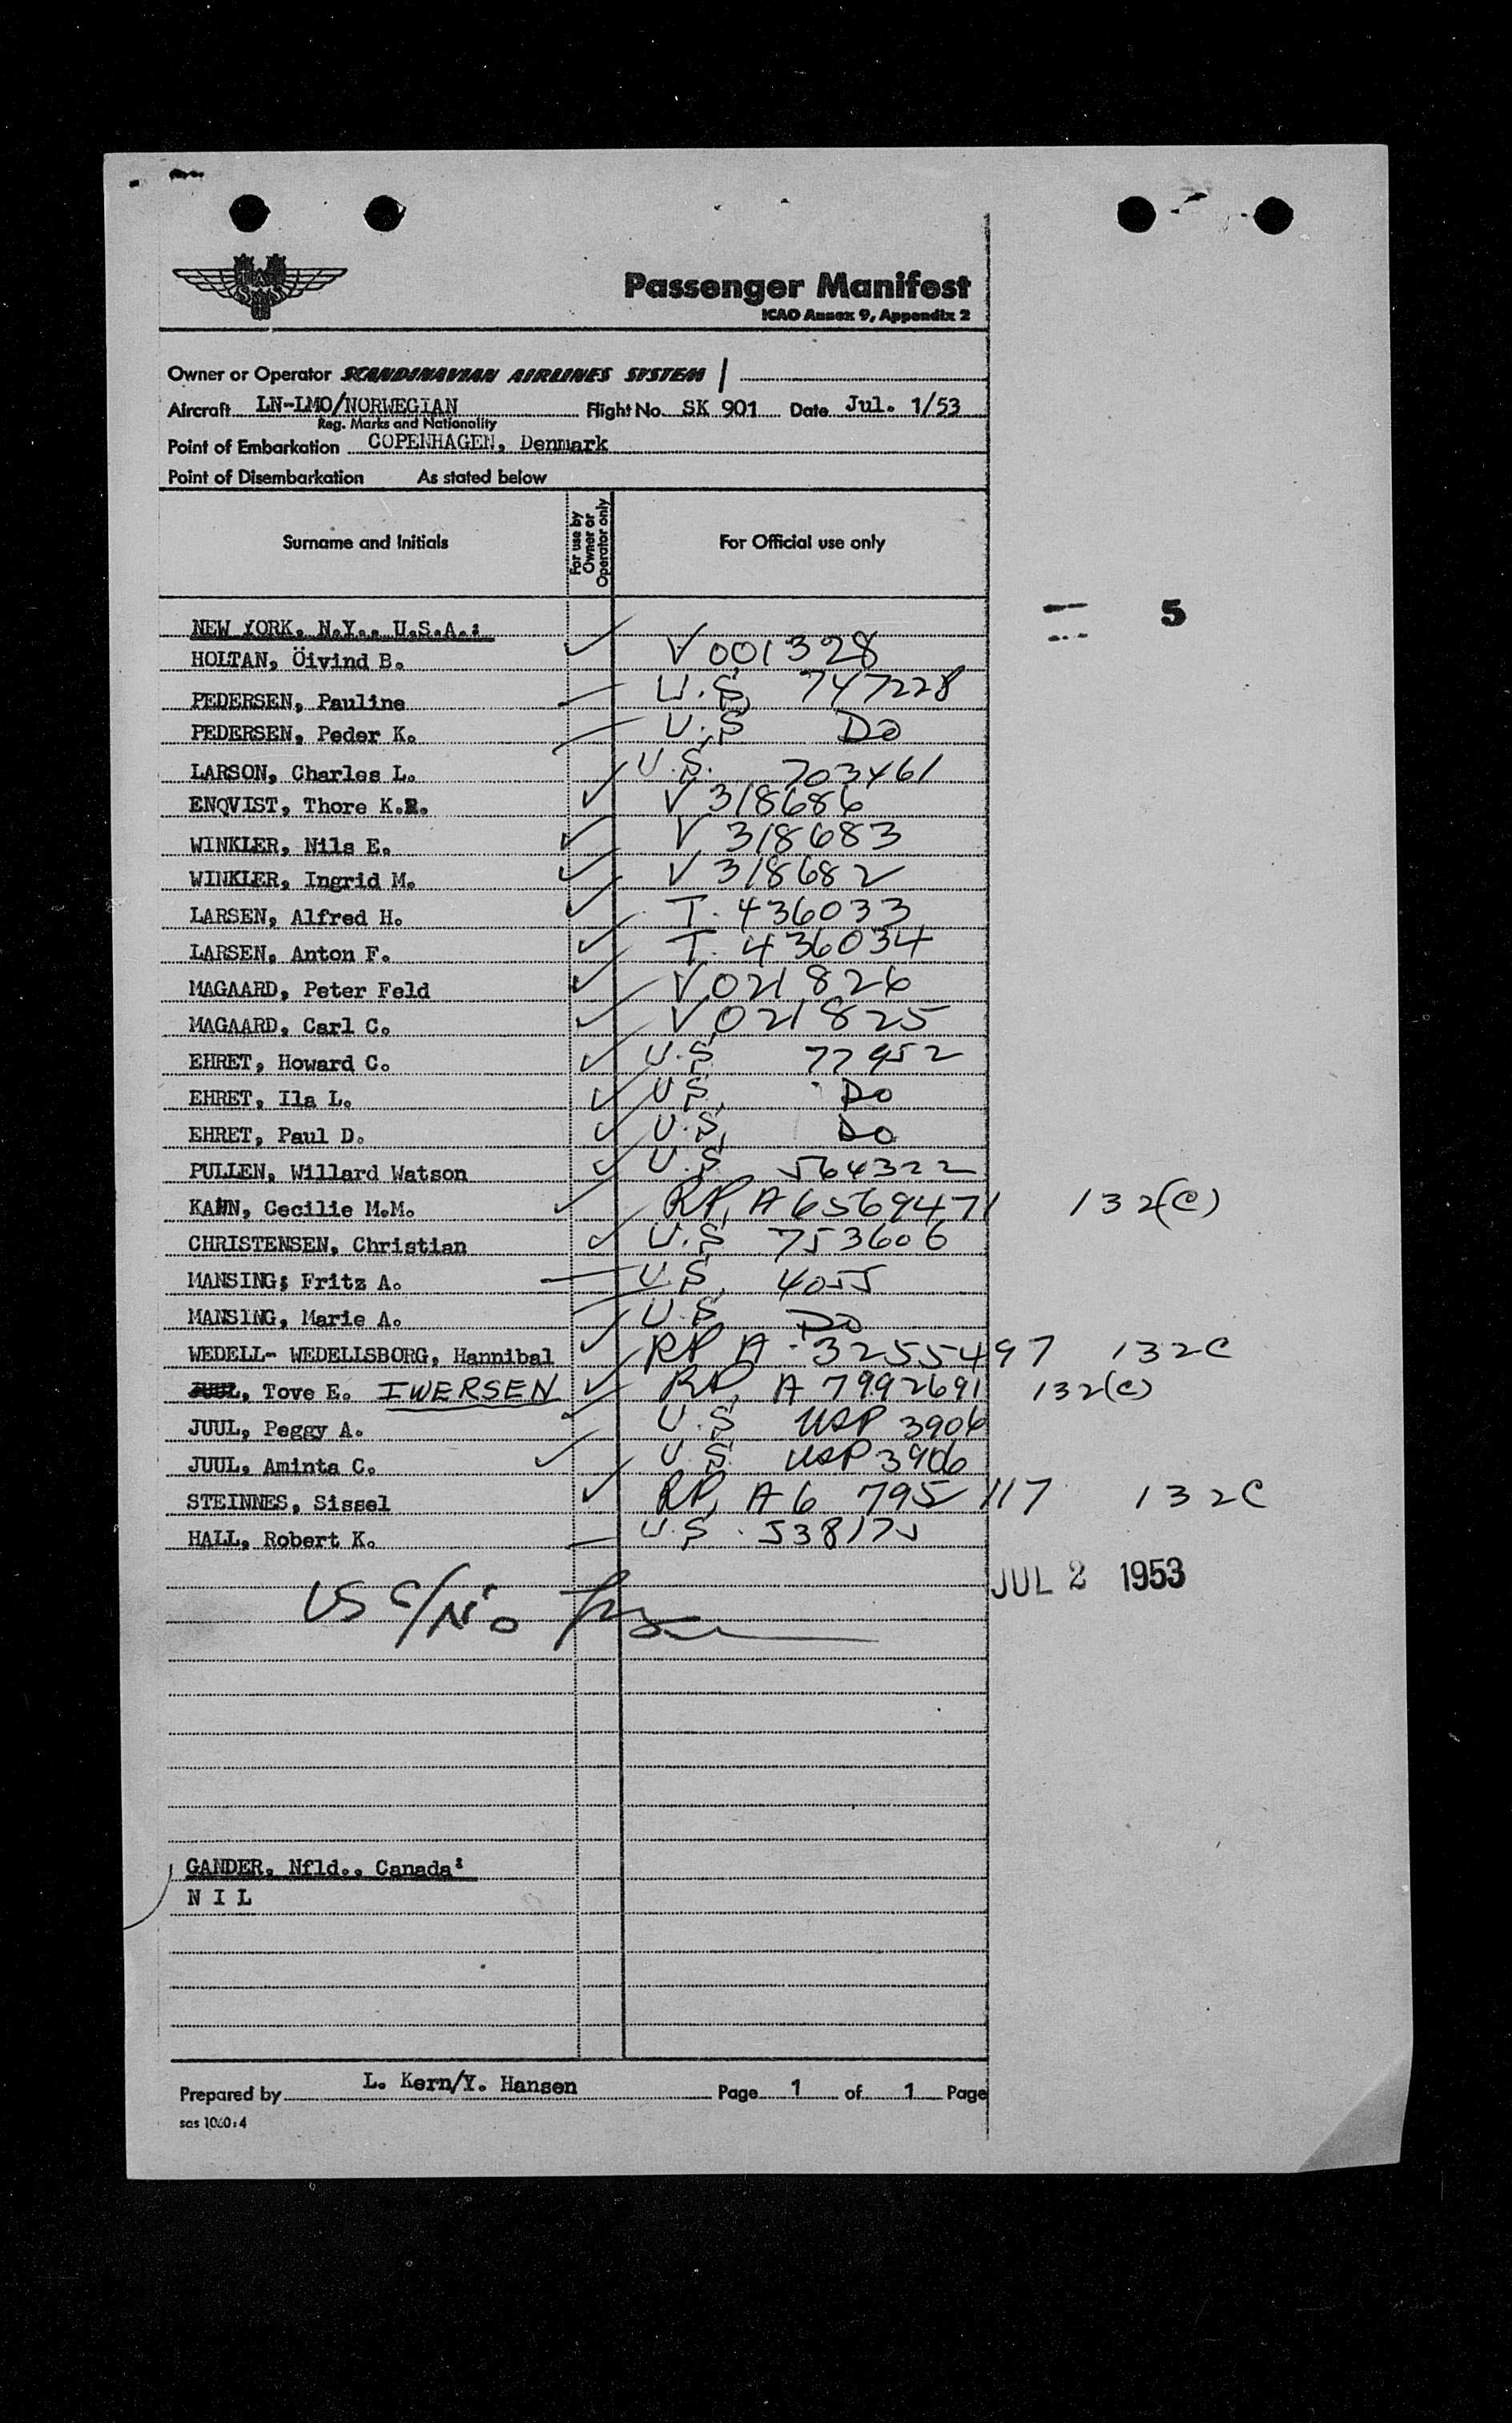 Passenger Manifest
ICAO Annex 9, Appendix 2
Owner or Operator SCANDINAVIAN AIRLINES SYSTEM
Aircraft LN-LMO/NORWEGIAN Flight No. SK 901 Date Jul. 1/53
Reg. Marks and Nationality
Point of Embarkation COPENHAGEN, Denmark
Point of Disembarkation As stated below
Surname and Initials For use by Owner or Operator only For Official use only
5
NEW YORK, N.Y., U.S.A.:
HOLTAN, Öivind B. V 001328
PEDERSEN, Pauline U.S. 747228
PEDERSEN, Peder K. U.S Do
LARSON, Charles L. U.S. 703461
ENQVIST, Thore K.R. V 318686
WINKLER, Nils E. V 318683
WINKLER, Ingrid M. V 318682
LARSEN, Alfred H. T. 436033
LARSEN, Anton F. T. 436034
MAGAARD, Peter Feld V 021826
MAGAARD, Carl C. V 021825
EHRET, Howard C. U.S 77952
EHRET, Ila L. U.S. Do
EHRET, Paul D. U.S. Do
PULLEN, Willard Watson U.S 564322
KAHN, Cecilie M.M. RP. A6569471 132(C)
CHRISTENSEN, Christian U.S 753606
MANSING; Fritz A. U.S. 4055
MANSING, Marie A. U.S Do
WEDELL- WEDELLSBORG, Hannibal RP A-3255497 132C
JUUL, Tove E. IWERSEN RP. A 7992691 132(C)
JUUL, Peggy A. U.S USP 3906
JUUL, Aminta C. U.S. USP 3906
STEINNES, Sissel RP. A6 795117 132C
HALL, Robert K. U.S. 538175
JUL 2 1953
US C/No
GANDER, Nfld., Canada:
N I L
Prepared by L. Kern/Y. Hansen Page 1 of 1 Page
sas 1060:4